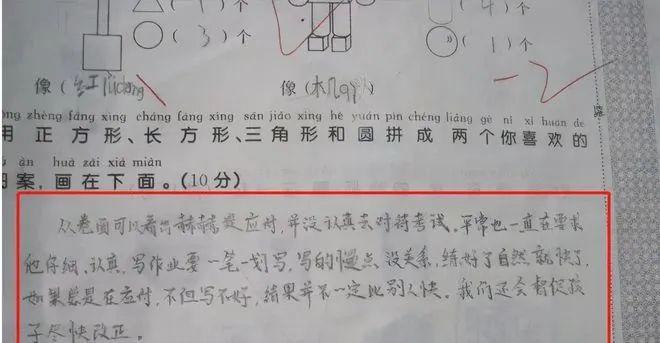 △( )个 ( 4 )个
○( 3 )个 ( 1 )个
像( 红lüdeng 像(机qi -2
òng zhèng fāng xíng cháng fāng xíng sān jiǎo xíng hé yuán pīn chéng liǎng gè nǐ xǐ huan de
用 正 方 形、长 方 形、三 角 形 和 圆 拼 成 两 个 你 喜 欢 的
àn huà zài xià miàn
图案,画在下面。(10分)
从卷面可以看出赫赫是应付,并没认真去对待考试。平常也一直在要求
他仔细、认真,写作业要一笔一划写,写的慢点没关系,练好了自然就快了,
如果总是在应付,不但写不好,结果并不一定比别人快。我们还会督促孩
子尽快改正。